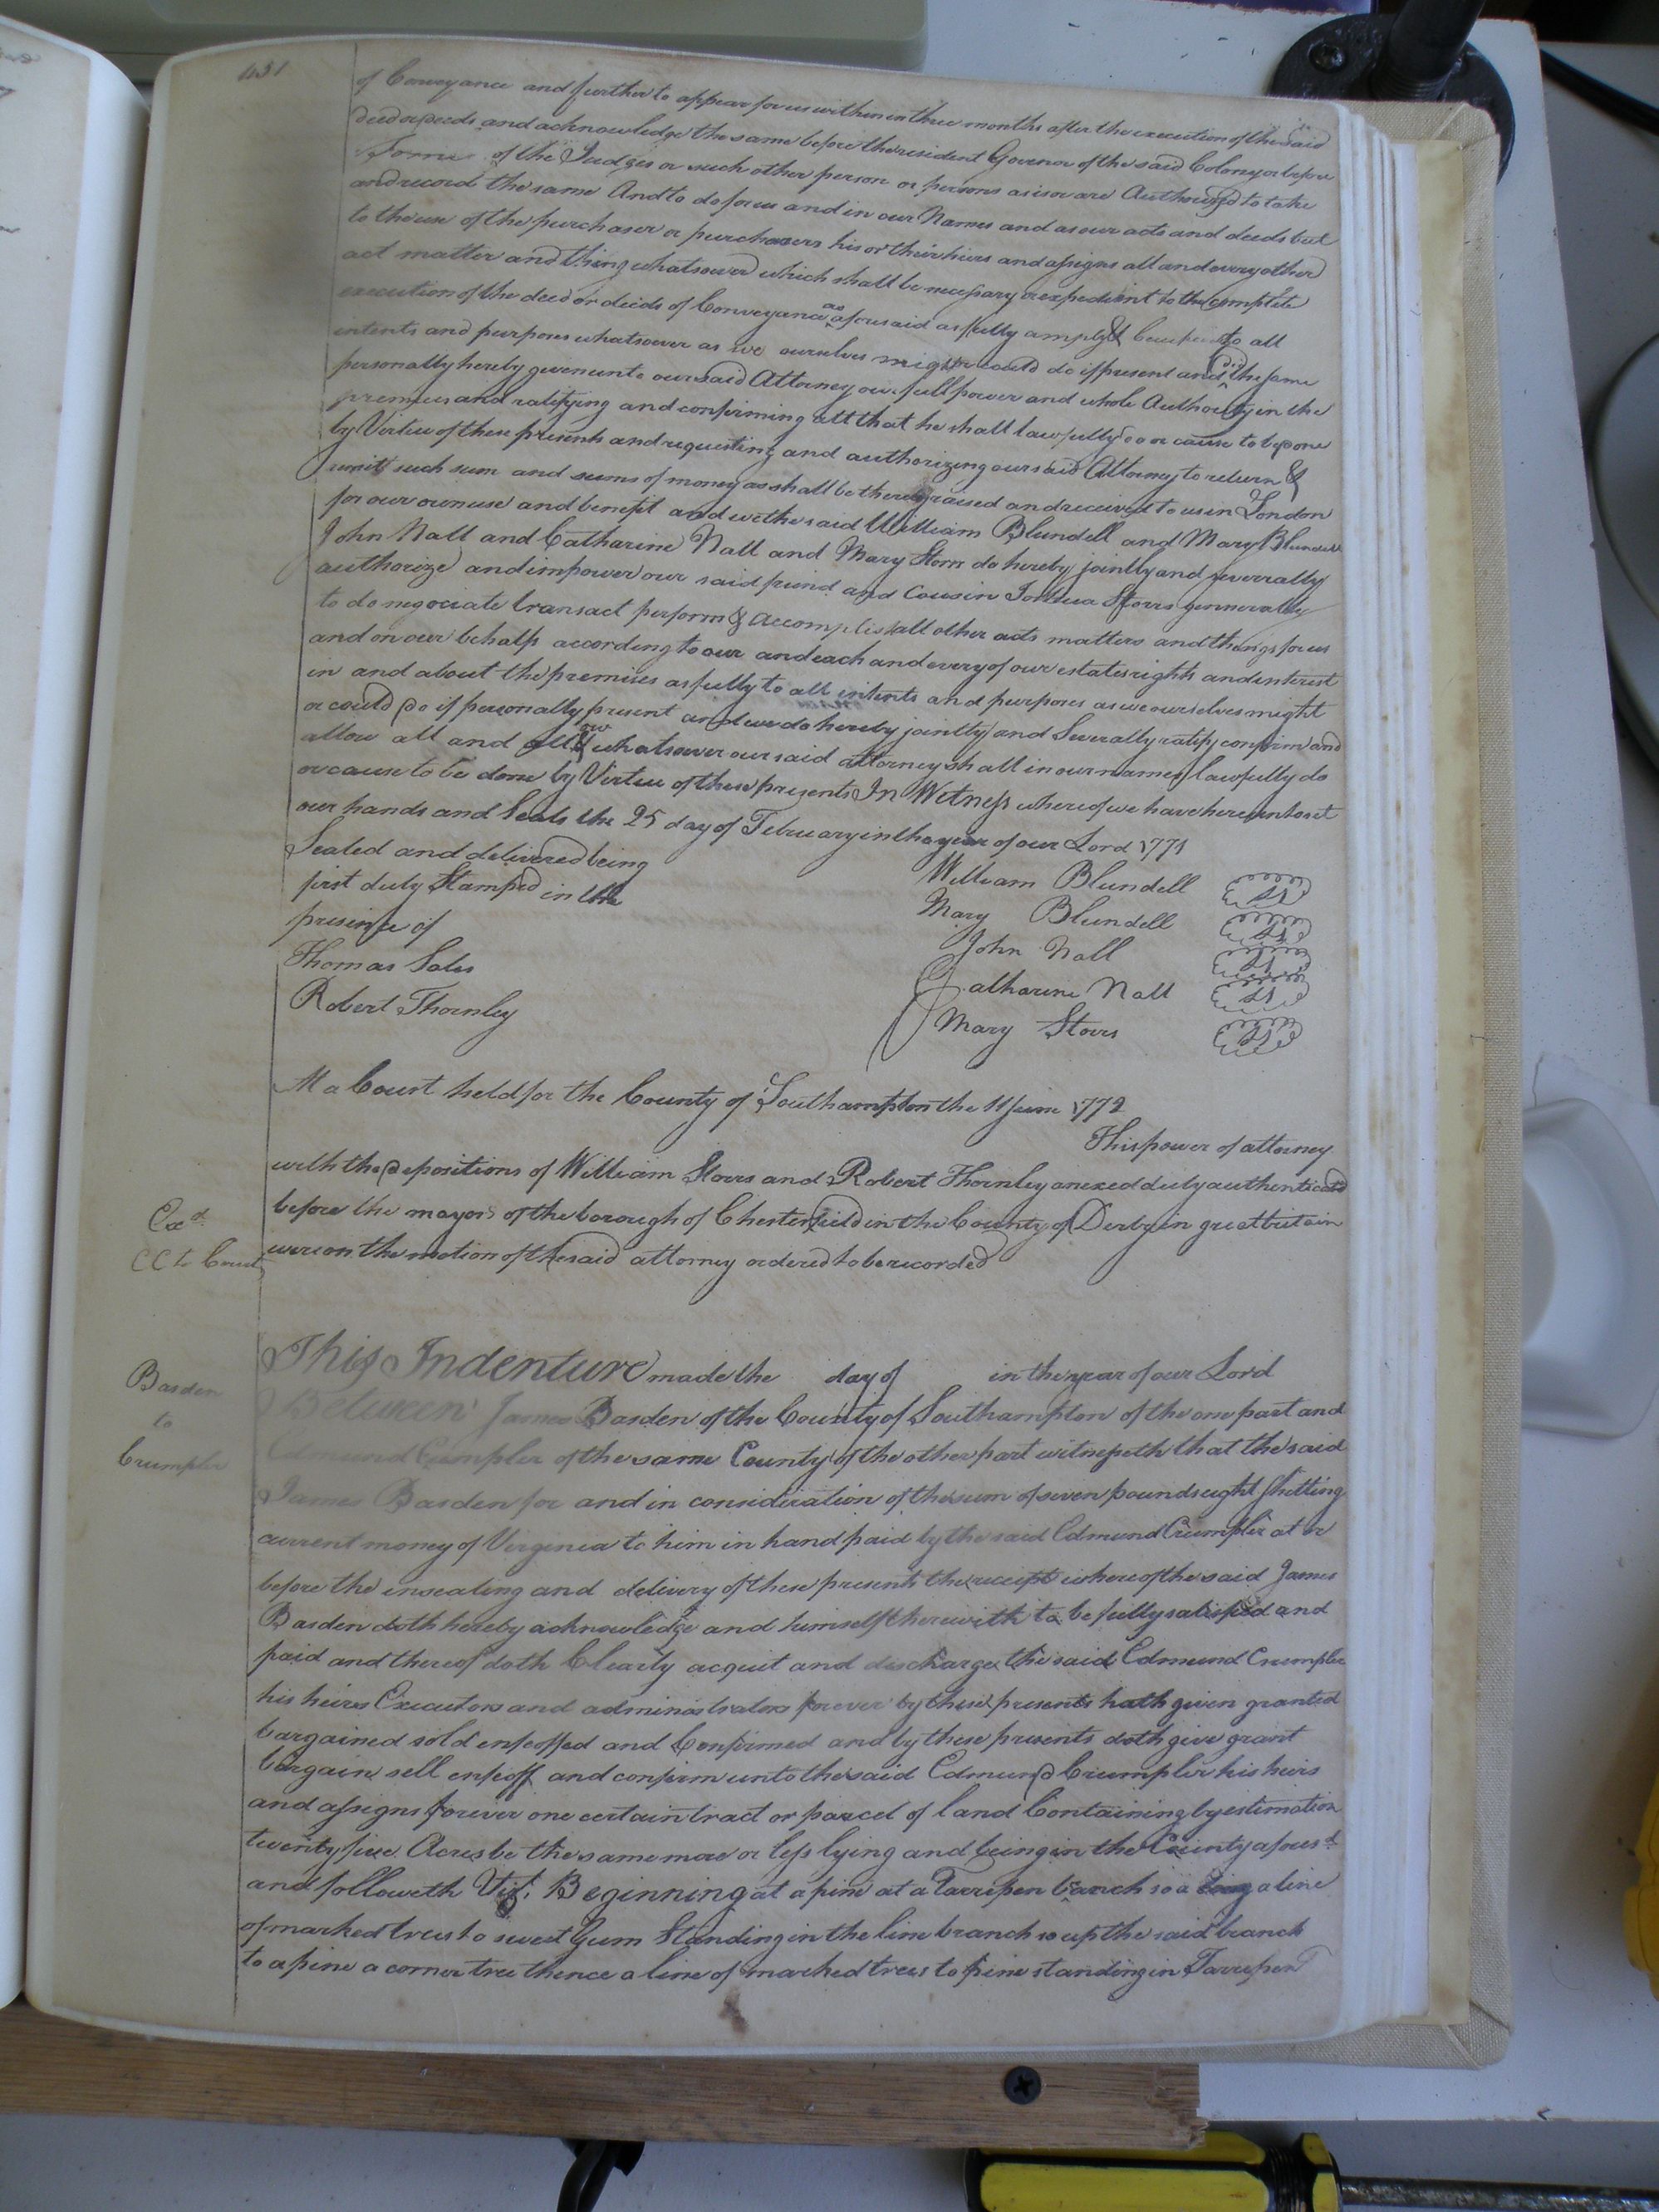 431
of Conveyance and further to appear for us within three months after the execution of the said
deed or deeds and acknowledge the same before the resident Govenor of the said Colony or before
Some of the Judges or such other person or persons as is or are Authorized to take
and record the same And to do for us and in our Names and as our acts and deeds but
to the use of the purchaser or purchasers his or their heirs and assigns all and every other
act matter and thing whatsoever which shall be necessary or expedient to the complete
execution of the deed or deeds of Conveyance as aforesaid as fully amply & to all
intents and purposes whatsoever as we ourselves might or could do if present and did the same
personally hereby given unto our said Attorney our full power and whole Authority in the
premises and ratifying and confirming all that he shall lawfully do or cause to be done
by Virtue of these presents and requesting and authorizing our said Attorney to return &
remit such sum and sums of money as shall be thereby raised and received to us in London
for our own use and benefit and we the said William Blundell and Mary Blundell
John Nall and Catharine Nall and Mary Storrs do hereby jointly and severrally
authorize and impower our said friend and Cousin Joshua Storrs gennerally
to do negociate transact perform & accomplish all other acts matters and things for us
and on our behalf according to our and each and every of our estates rights and interest
in and about the premises as fully to all intents and purposes as we ourselves might
or could do if personally present and we do hereby jointly and Severally ratify confirm and
allow all and whatsoever our said attorney shall in our names lawfully do
or cause to be done by Virtue of these presents In Witness whereof we have hereunto set
our hands and Seals the 25 day of February in the year of our Lord 1771
Sealed and delivered being
first duly Stamped in the
presence of
Thomas Sales
Robert Thornley
William Blundell LS
Mary Blundell LS
John Nall LS
Catharine Nall LS
Mary Storrs LS
At a Court held for the County of Southampton the 11 June 1772
This power of attorney
with the depositions of William Storrs and Robert Thornley anexed duly authenticated
before the mayor of the borough of Chesterfield in the County of Derby in great britain
were on the motion of the said attorney ordered to be recorded
Exd.
CC to Court
Basden
to
Crumpler
This Indenture made the day of in the year of our Lord
Between James Basden of the County of Southampton of the one part and
Edmund Crumpler of the same County of the other part witnesseth that the said
James Basden for and in consideration of the sum of seven pounds eight shilling
current money of Virginia to him in hand paid by the said Edmund Crumpler at or
before the ensealing and delivery of these presents the receipt whereof the said James
Basden doth hereby acknowledge and himself therewith to be fully satisfied and
paid and thereof doth Clearly acquit and discharge the said Edmund Crumpler
his heires Executors and administrators forever by these presents hath given granted
bargained sold enfeoffed and Confirmed and by these presents doth give grant
bargain sell enfeoff and confirm unto the said Edmund Crumpler his heirs
and assigns forever one certain tract or parcel of land Containing by estimation
twenty five Acres be the same more or less lying and being in the County aforesd.
and followeth Vizt. Beginning at a pine at a Tarripen branch so a long a line
of marked trees to sweet Gum Standing in the line branch so up the said branch
to a pine a corner tree thence a line of marked trees to pine standing in Tarripen